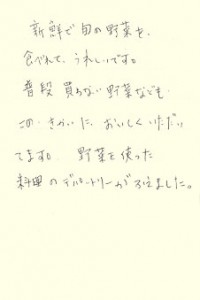 新鮮で旬の野菜を、
食べれて、うれしいです。
普段買わない野菜なども、
この、きかいに、おいしくいただい
てます。 野菜を使った
料理のレパートリーがふえました。